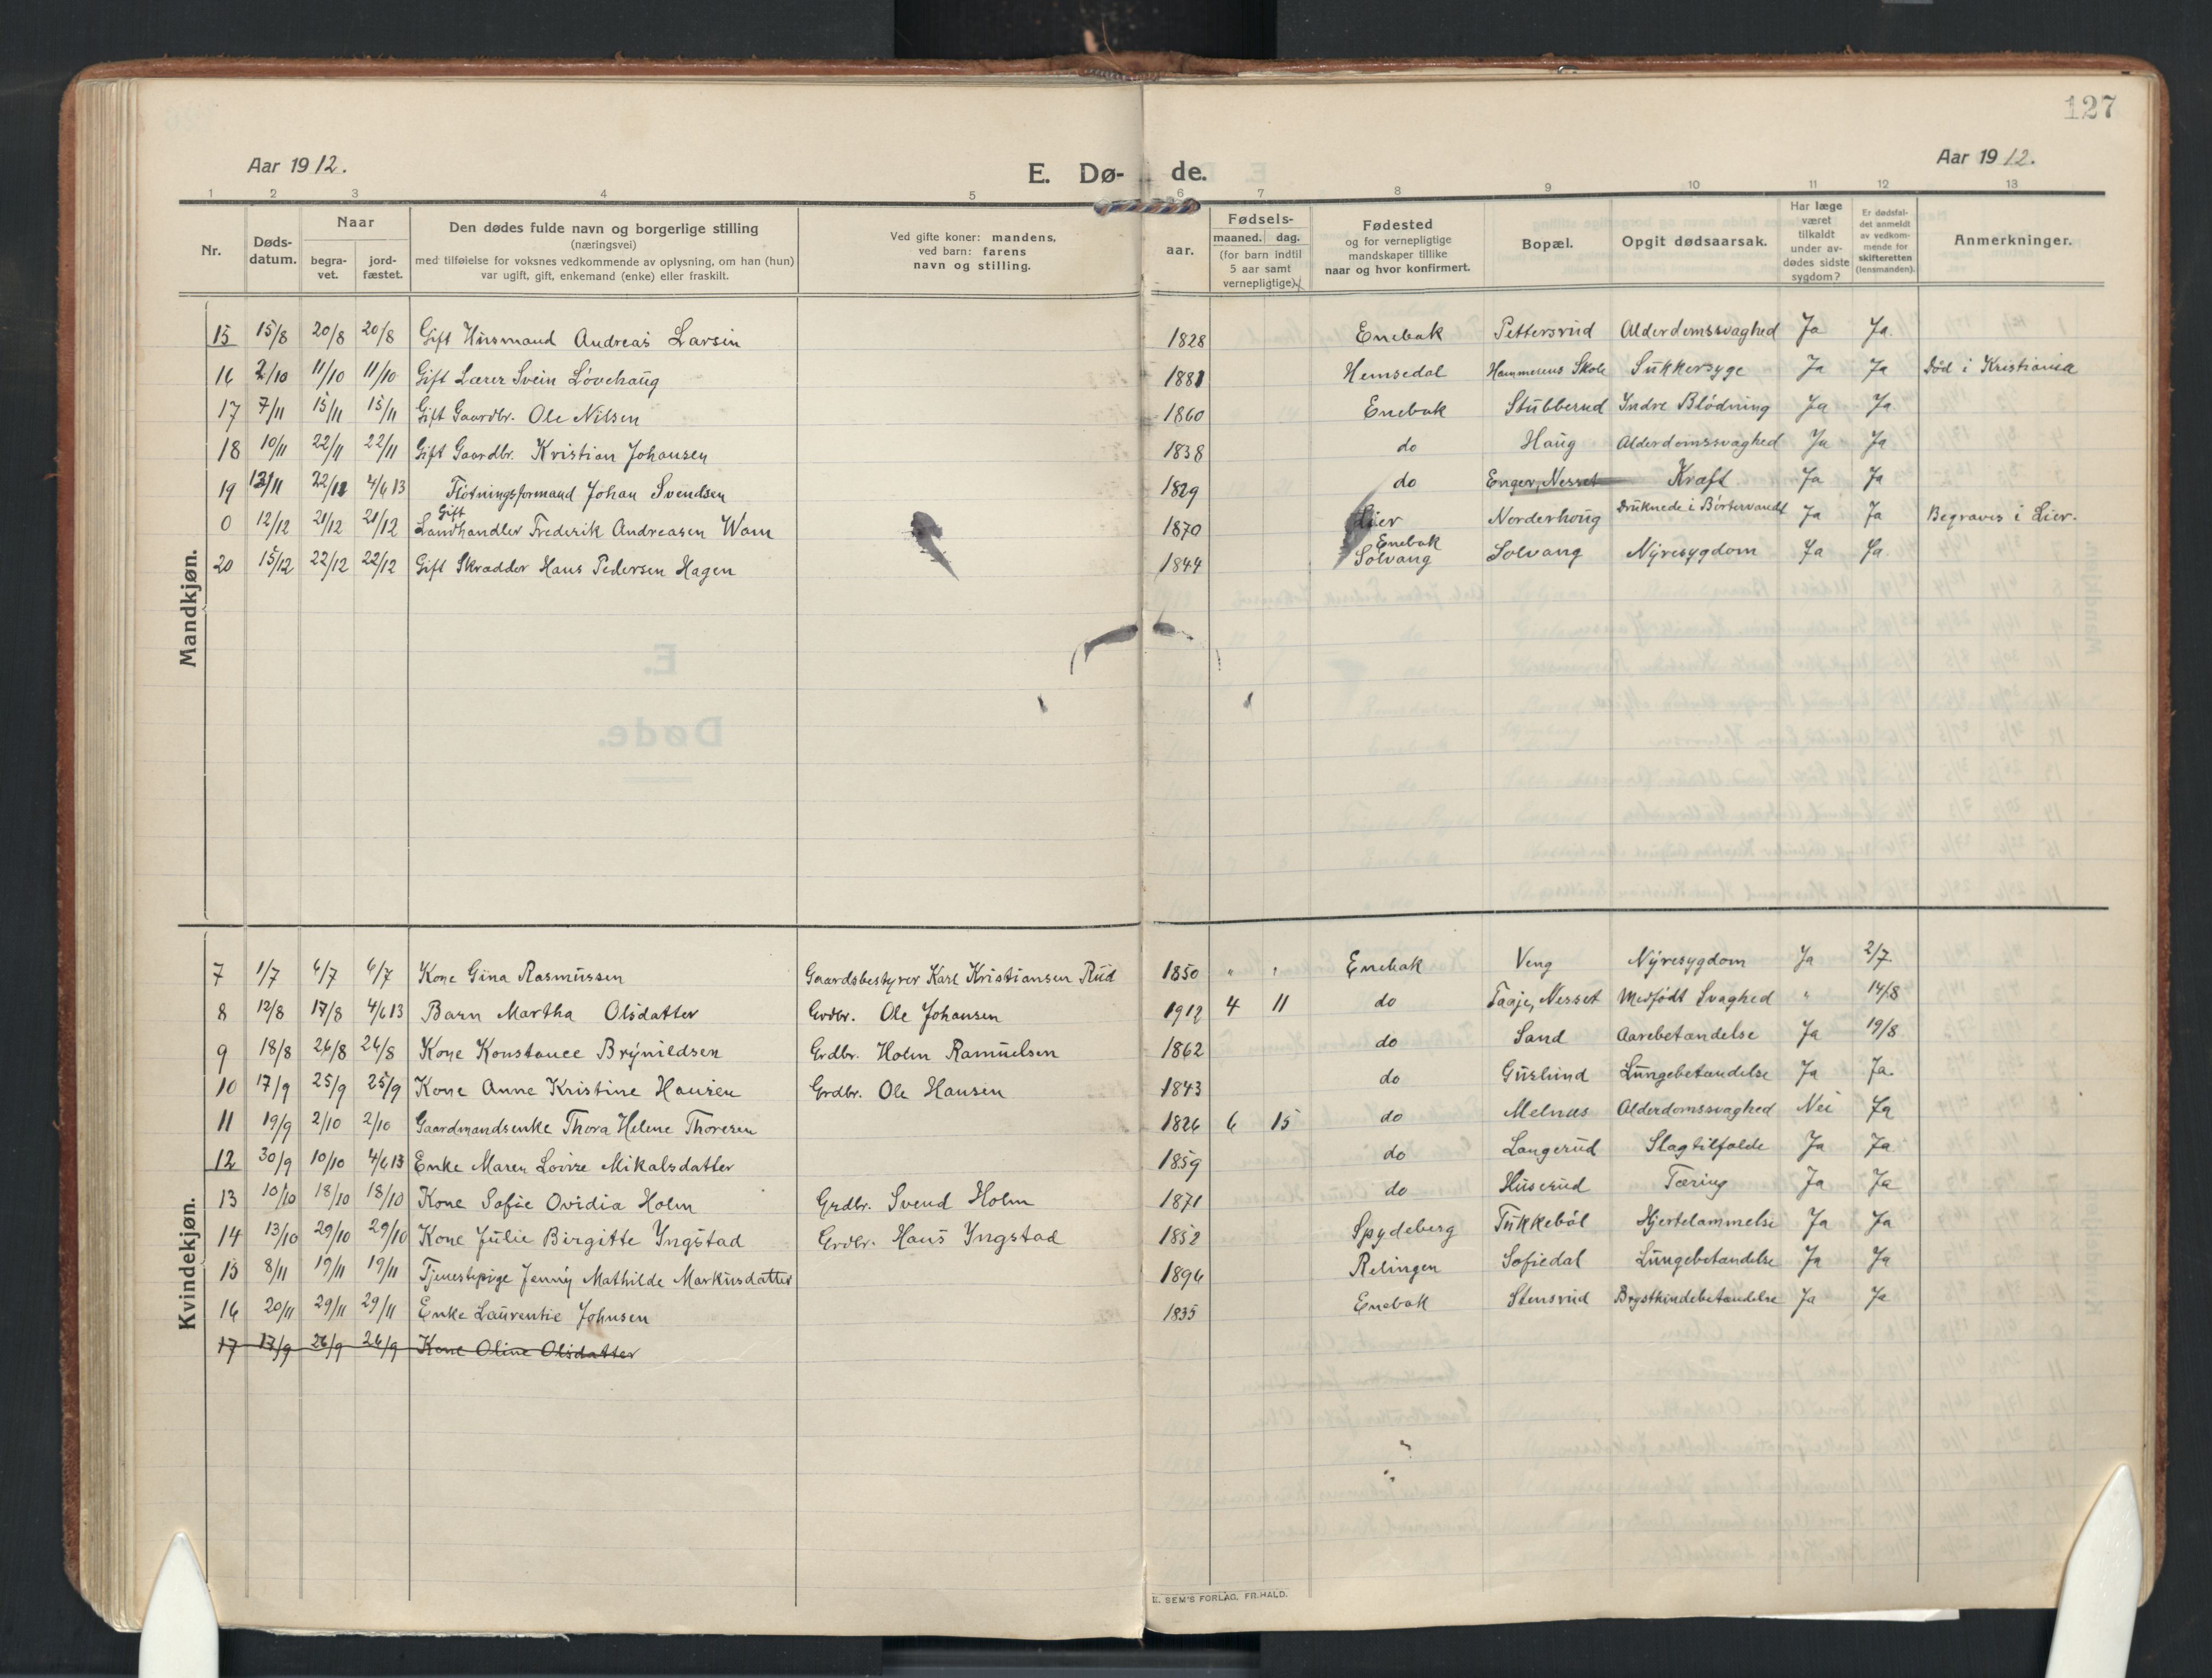 127
Aar 1912.
E. Dø- de.
Aar 1912.
1 2 3 4 5 6 7 8 9 10 11 12 13
Nr.
Døds-
datum.
Naar
begra-
vet.
jord-
fæstet.
Den dødes fulde navn og borgerlige stilling
(næringsvei)
med tilføielse for voksnes vedkommende av oplysning, om han (hun)
var ugift, gift, enkemand (enke) eller fraskilt.
Ved gifte koner: mandens,
ved barn: farens
navn og stilling.
aar.
Fødsels-
maaned. dag.
(for barn indtil
5 aar samt
vernepligtige)
Fødested
og for vernepligtige
mandskaper tillike
naar og hvor konfirmert.
Bopæl.
Opgit dødsaarsak.
Har læge
været
tilkaldt
under av-
dødes sidste
sygdom?
Er dødsfal-
det anmeldt
av vedkom-
mende for
skifteretten
(lensmanden).
Anmerkninger.
Mandkjøn.
15 15/8 20/8 20/8 Gift Husmand Andreas Larsen 1828 Enebak Pettersrud Alderdomssvaghed Ja Ja.
16 2/10 11/10 11/10 Gift Lærer Svein Løvehaug 1881 Hemsedal Hammerens Skole Sukkersyge Ja Ja Død i Kristiania
17 7/11 15/11 15/11 Gift Gaardbr. Ole Nilsen 1860 Enebak Stubberud Indre Blødning Ja Ja
18 10/11 22/11 22/11 Gift Gaardbr. Kristian Johansen 1838 do Haug Alderdomssvaghed Ja Ja
19 22/12 4/6 13 Fløtningsformand Johan Svendsen 1829 do Enger, Nesset Kræft Ja Ja
Gift
0 12/12 21/12 21/12 Landhandler Frederik Andreasen Wam 1870 Lier Norderhoug Druknede i Børtervandt Ja Ja Begraves i Lier.
Enebak
20 15/12 22/12 22/12 Gift Skrædder Hans Pedersen Hagen 1844 Solvang Solvang Nyresygdom Ja Ja.
Kvindekjøn.
7 1/7 6/7 6/7 Kone Gina Rasmussen Gaardsbestyrer Karl Kristiansen Rud 1850 " " Enebak Veng Nyresygdom Ja 2/7
8 12/8 17/8 4/6 13 Barn Martha Olsdatter Grdbr. Ole Johansen 1912 4 11 do Taaje, Nesset Medfødt Svaghed " 14/8
9 18/8 26/8 26/8 Kone Konstance Brynildsen Grdbr. Holm Ramuelsen 1862 do Sand Aarebetændelse Ja 19/8
10 17/9 25/9 25/9 Kone Anne Kristine Hansen Grdbr. Ole Hansen 1843 do Guslund Lungebetændelse Ja Ja.
11 19/9 2/10 2/10 Gaardmandsenke Thora Helene Thoresen 1826 6 15 do Melnæs Alderdomssvaghed Nei Ja
12 30/9 10/10 4/6 13 Enke Maren Lovise Mikalsdatter 1859 do Langerud Slagtilfælde Ja Ja
13 10/10 18/10 18/10 Kone Sofie Ovidia Holm Grdbr. Svend Holm 1871 do Huserud Tæring Ja Ja
14 13/10 29/10 29/10 Kone Julie Birgitte Yngstad Grdbr. Hans Yngstad 1852 Spydeberg Tukkebøl Hjertelammelse Ja Ja
15 8/11 19/11 19/11 Tjenestepige Jenny Mathilde Markusdatter 1896 Relingen Sofiedal Lungebetændelse Ja Ja
16 20/11 29/11 29/11 Enke Laurentie Johnsen 1835 Enebak Stensrud Brysthindebetændelse Ja Ja
17 17/9 26/9 26/9 Kone Oline Olsdatter
E. SEM'S FORLAG, FR.HALD.